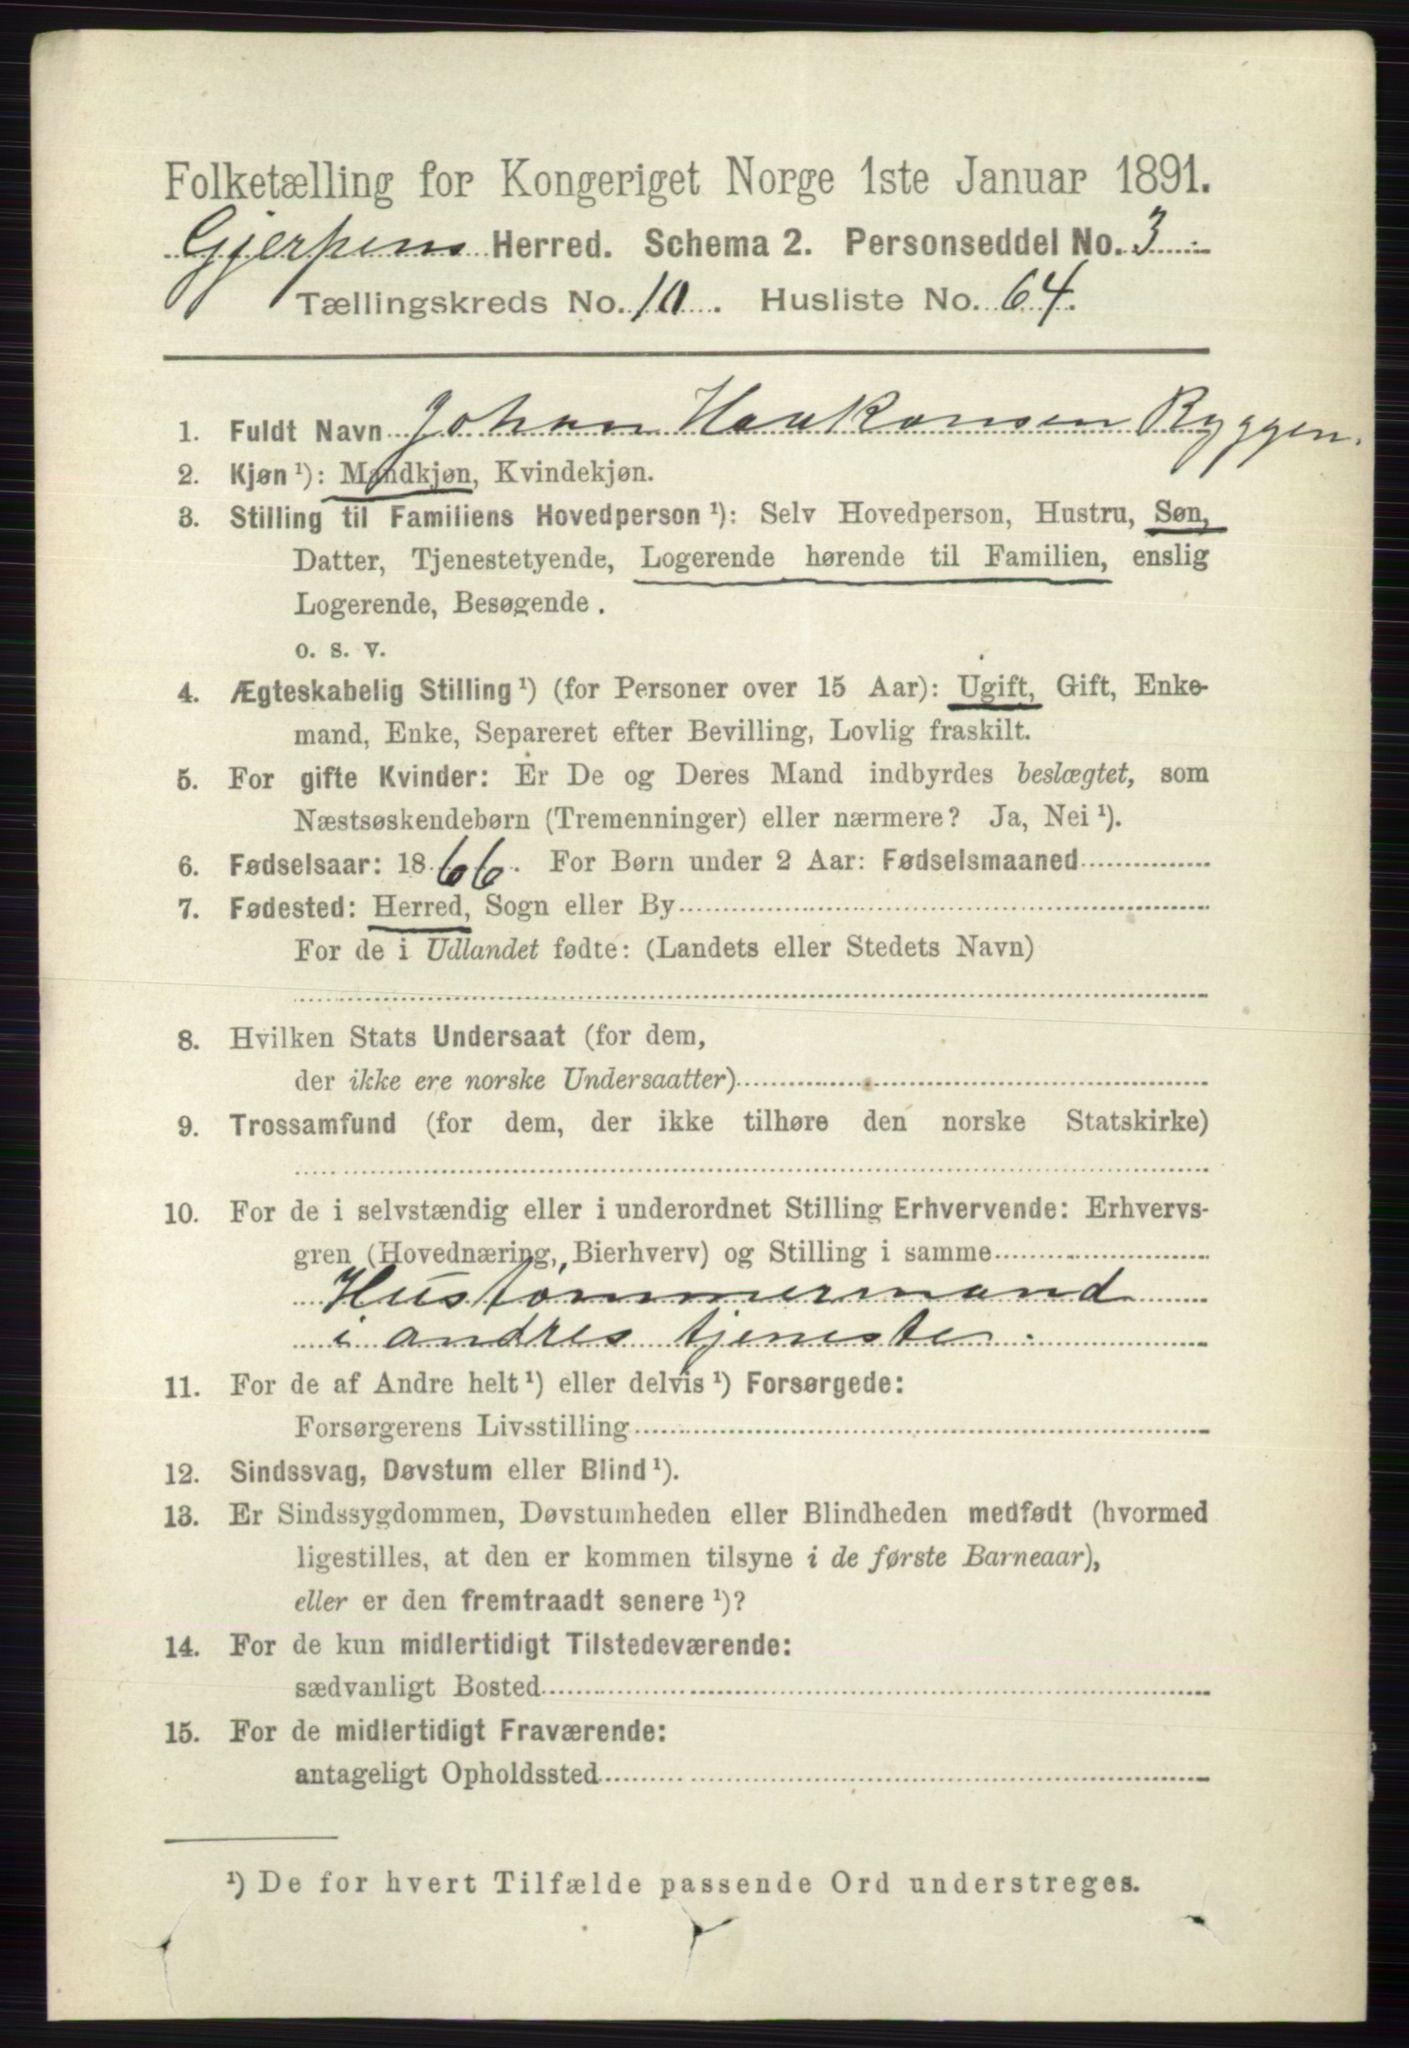 Folketælling for Kongeriget Norge 1ste Januar 1891.
Gjerpens Herred. Schema 2. Personseddel No. 3
Tællingskreds No. 10. Husliste No. 64.
1. Fuldt Navn Johan Haakonsen Ryggen.
2. Kjøn ¹): Mandkjøn, Kvindekjøn.
3. Stilling til Familiens Hovedperson ¹): Selv Hovedperson, Hustru, Søn,
Datter, Tjenestetyende, Logerende hørende til Familien, enslig
Logerende, Besøgende .
o. s. v.
4. Ægteskabelig Stilling ¹) (for Personer over 15 Aar): Ugift, Gift, Enke-
mand, Enke, Separeret efter Bevilling, Lovlig fraskilt.
5. For gifte Kvinder: Er De og Deres Mand indbyrdes beslægtet, som
Næstsøskendebørn (Tremenninger) eller nærmere? Ja, Nei ¹).
6. Fødselsaar: 1866. For Børn under 2 Aar: Fødselsmaaned
7. Fødested: Herred, Sogn eller By
For de i Udlandet fødte: (Landets eller Stedets Navn)
8. Hvilken Stats Undersaat (for dem,
der ikke ere norske Undersaatter)
9. Trossamfund (for dem, der ikke tilhøre den norske Statskirke)
10. For de i selvstændig eller i underordnet Stilling Erhvervende: Erhvervs-
gren (Hovednæring, Bierhverv) og Stilling i samme
Hustømmermand
i andres tjeneste.
11. For de af Andre helt ¹) eller delvis ¹) Forsørgede:
Forsørgerens Livsstilling
12. Sindssvag, Døvstum eller Blind ¹).
13. Er Sindssygdommen, Døvstumheden eller Blindheden medfødt (hvormed
ligestilles, at den er kommen tilsyne i de første Barneaar),
eller er den fremtraadt senere ¹)?
14. For de kun midlertidigt Tilstedeværende:
sædvanligt Bosted
15. For de midlertidigt Fraværende:
antageligt Opholdssted
¹) De for hvert Tilfælde passende Ord understreges.